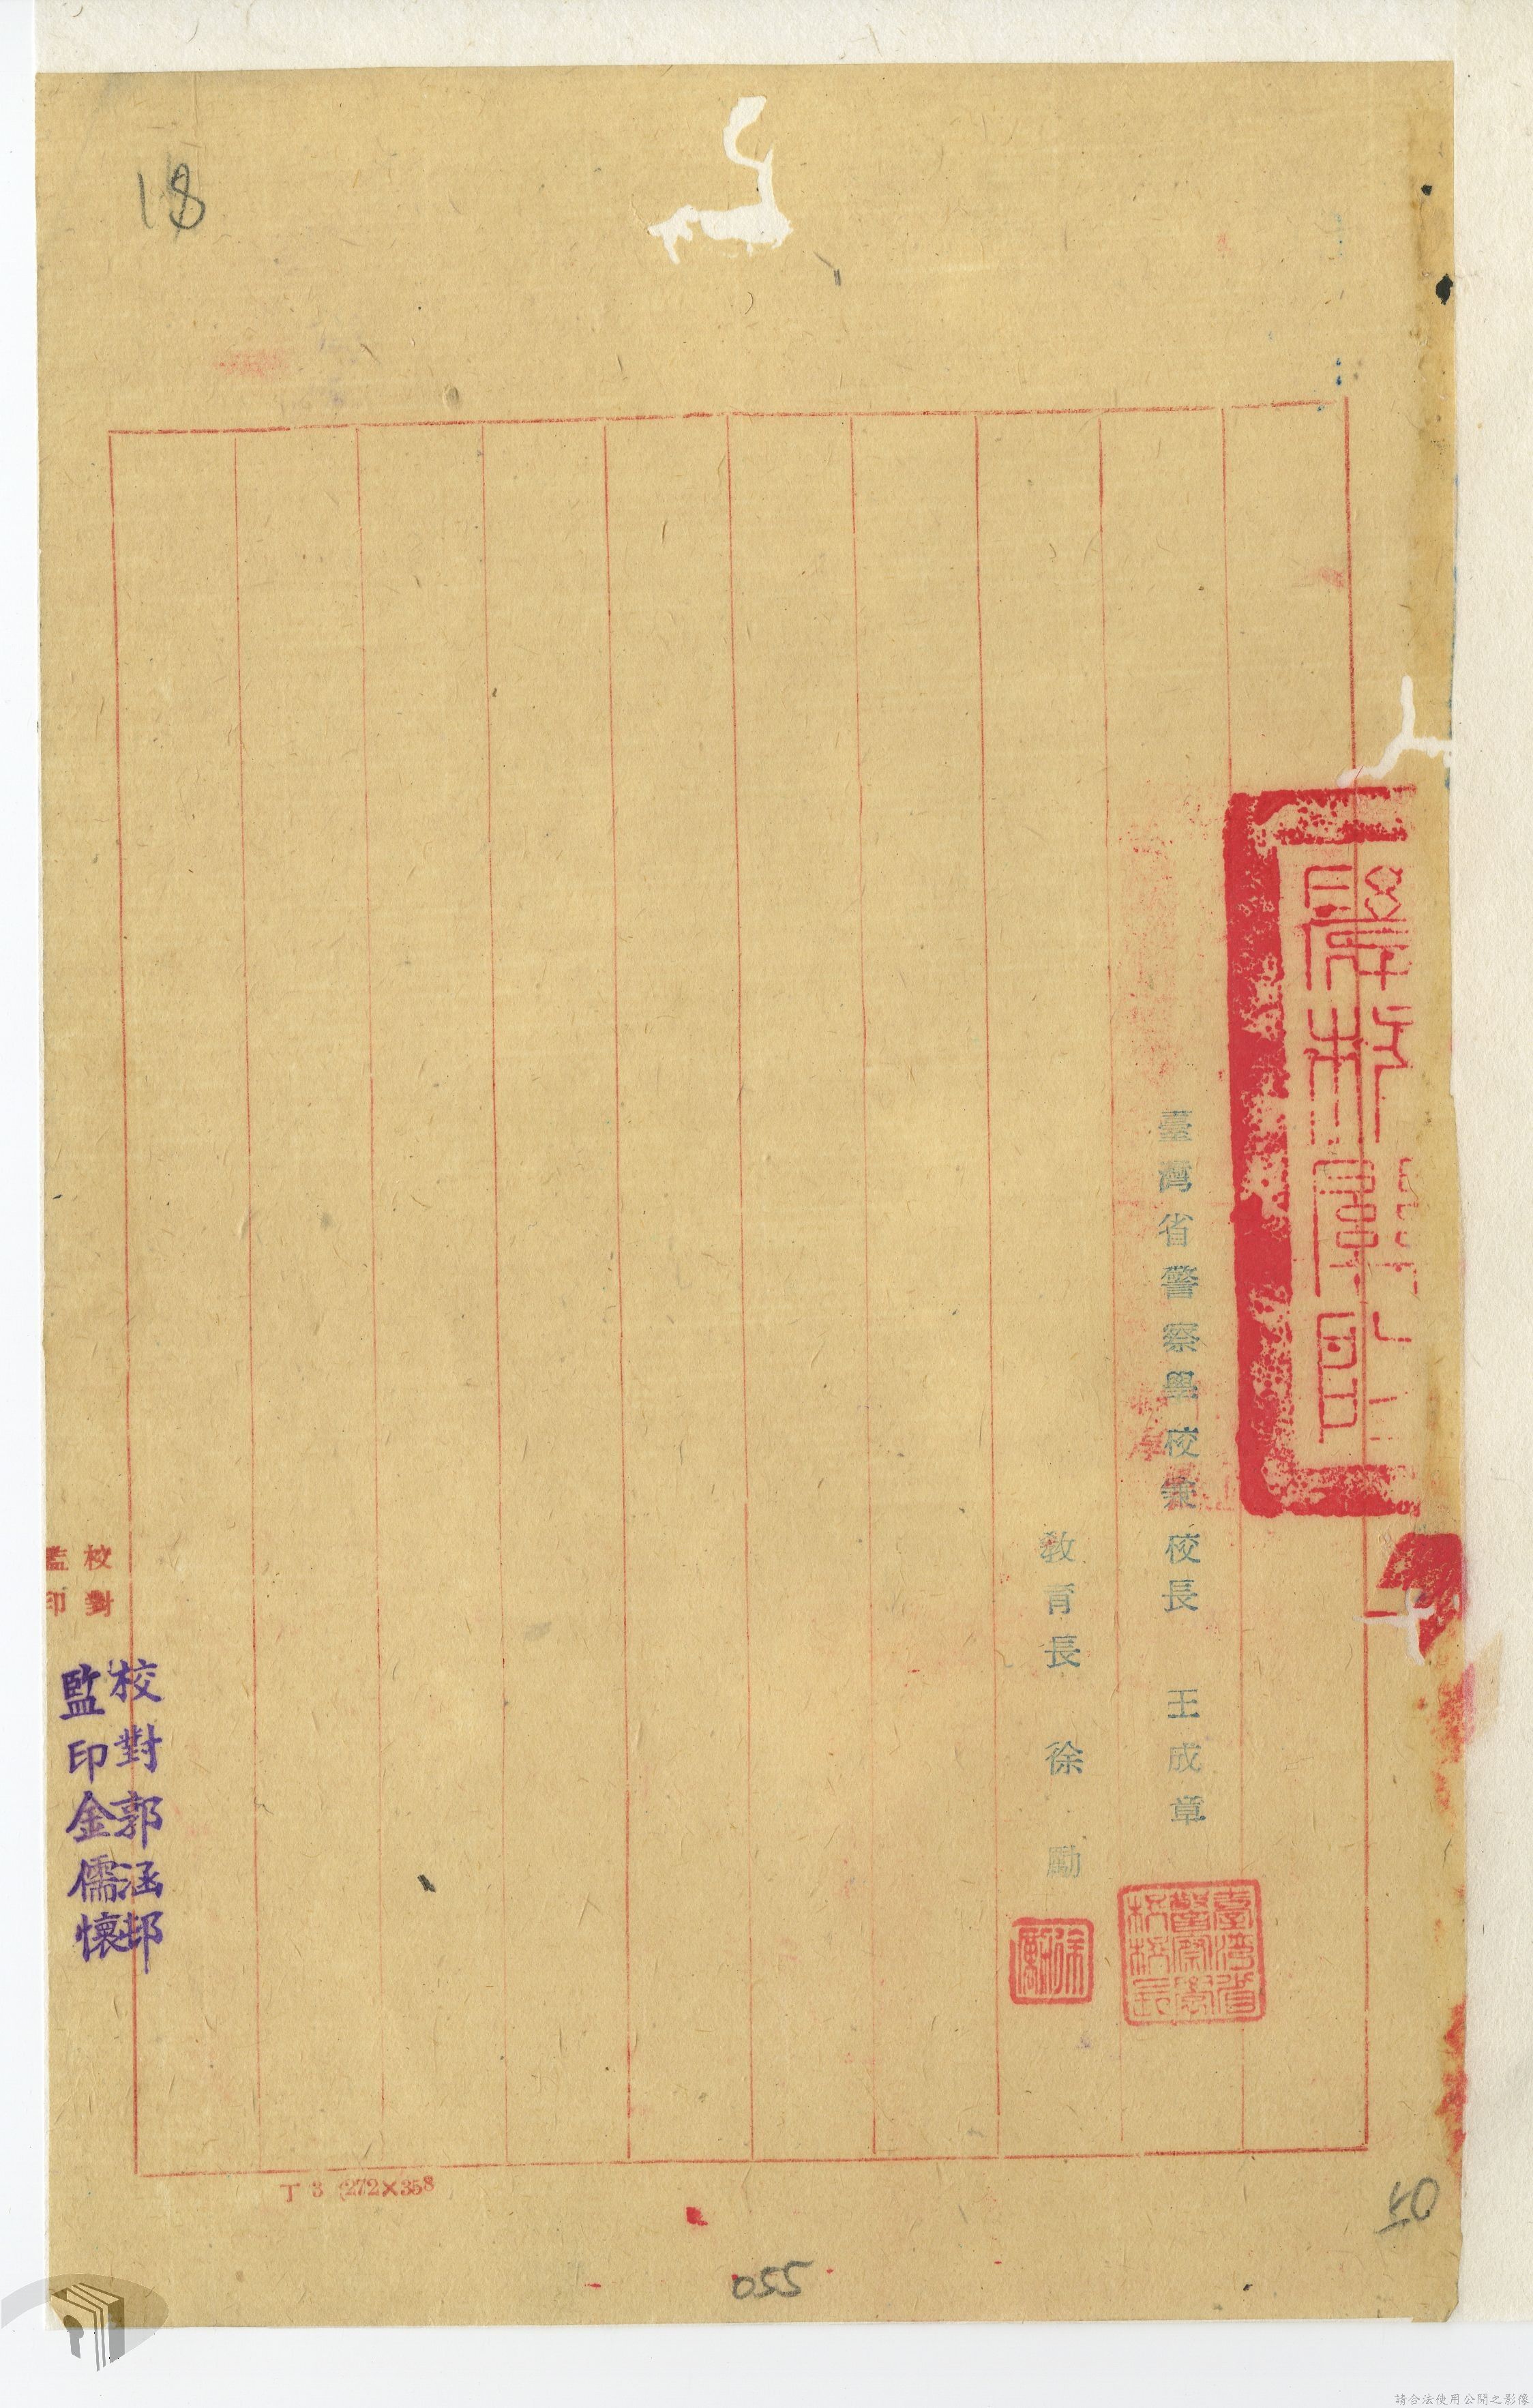 18
臺灣省警察學校兼校長 王成章
臺灣省警察學校校長
教育長 徐勵
徐勵
校對
監印
校對郭涵邨
監印金儒懷
丁 3 (272×358
50
055
請合法使用公開之影像